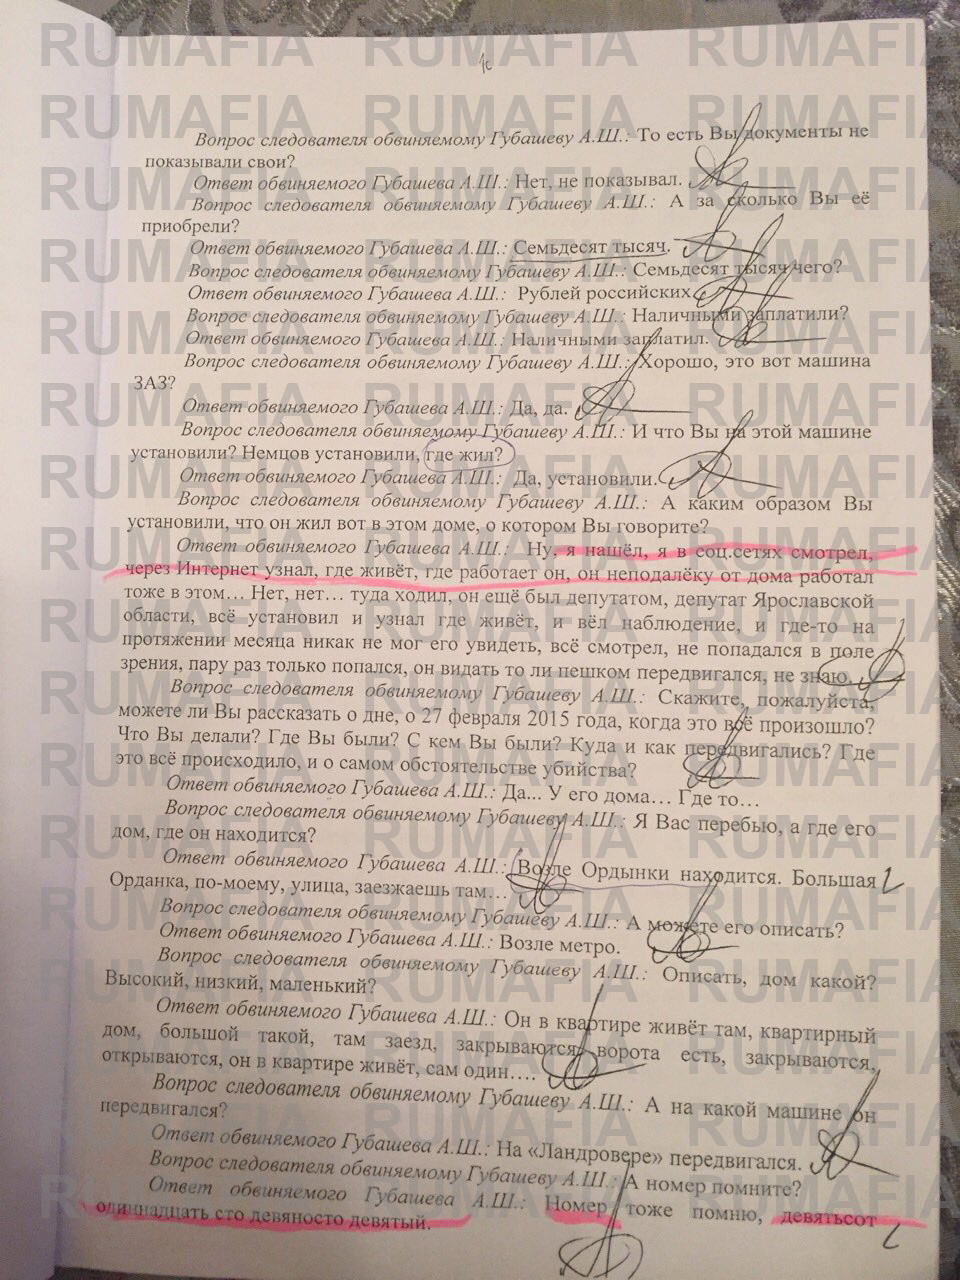 Вопрос следователя обвиняемому Губашеву А.Ш.: То есть Вы документы не
показывали свои?
Ответ обвиняемого Губашева А.Ш.: Нет, не показывал.
Вопрос следователя обвиняемому Губашеву А.Ш.: А за сколько Вы её
приобрели?
Ответ обвиняемого Губашева А.Ш.: Семьдесят тысяч.
Вопрос следователя обвиняемому Губашеву А.Ш.: Семьдесят тысяч чего?
Ответ обвиняемого Губашева А.Ш.: Рублей российских
Вопрос следователя обвиняемому Губашеву А.Ш.: Наличными заплатили?
Ответ обвиняемого Губашева А.Ш.: Наличными заплатил.
Вопрос следователя обвиняемому Губашеву А.Ш.: Хорошо, это вот машина
ЗАЗ?
Ответ обвиняемого Губашева А.Ш.: Да, да.
Вопрос следователя обвиняемому Губашеву А.Ш.: И что Вы на этой машине
установили? Немцов установили, где жил?
Ответ обвиняемого Губашева А.Ш.: Да, установили.
Вопрос следователя обвиняемому Губашеву А.Ш.: А каким образом Вы
установили, что он жил вот в этом доме, о котором Вы говорите?
Ответ обвиняемого Губашева А.Ш.: Ну, я нашёл, я в соц.сетях смотрел,
через Интернет узнал, где живёт, где работает он, он неподалёку от дома работал
тоже в этом… Нет, нет… туда ходил, он ещё был депутатом, депутат Ярославской
области, всё установил и узнал где живёт, и вёл наблюдение, и где-то на
протяжении месяца никак не мог его увидеть, всё смотрел, не попадался в поле
зрения, пару раз только попался, он видать то ли пешком передвигался, не знаю.
Вопрос следователя обвиняемому Губашеву А.Ш.: Скажите, пожалуйста,
можете ли Вы рассказать о дне, о 27 февраля 2015 года, когда это всё произошло?
Что Вы делали? Где Вы были? С кем Вы были? Куда и как передвигались? Где
это всё происходило, и о самом обстоятельстве убийства?
Ответ обвиняемого Губашева А.Ш.: Да... У его дома… Где то…
Вопрос следователя обвиняемому Губашеву А.Ш.: Я Вас перебью, а где его
дом, где он находится?
Ответ обвиняемого Губашева А.Ш.: Возле Ордынки находится. Большая
Орданка, по-моему, улица, заезжаешь там…
Вопрос следователя обвиняемому Губашеву А.Ш.: А можете его описать?
Ответ обвиняемого Губашева А.Ш.: Возле метро.
Вопрос следователя обвиняемому Губашеву А.Ш.: Описать, дом какой?
Высокий, низкий, маленький?
Ответ обвиняемого Губашева А.Ш.: Он в квартире живёт там, квартирный
дом, большой такой, там заезд, закрываются, ворота есть, закрываются,
открываются, он в квартире живёт, сам один….
Вопрос следователя обвиняемому Губашеву А.Ш.: А на какой машине он
передвигался?
Ответ обвиняемого Губашева А.Ш.: На «Ландровере» передвигался.
Вопрос следователя обвиняемому Губашеву А.Ш.: А номер помните?
Ответ обвиняемого Губашева А.Ш.: Номер тоже помню, девятьсот
одиннадцать сто девяносто девятый.
RUMAFIA